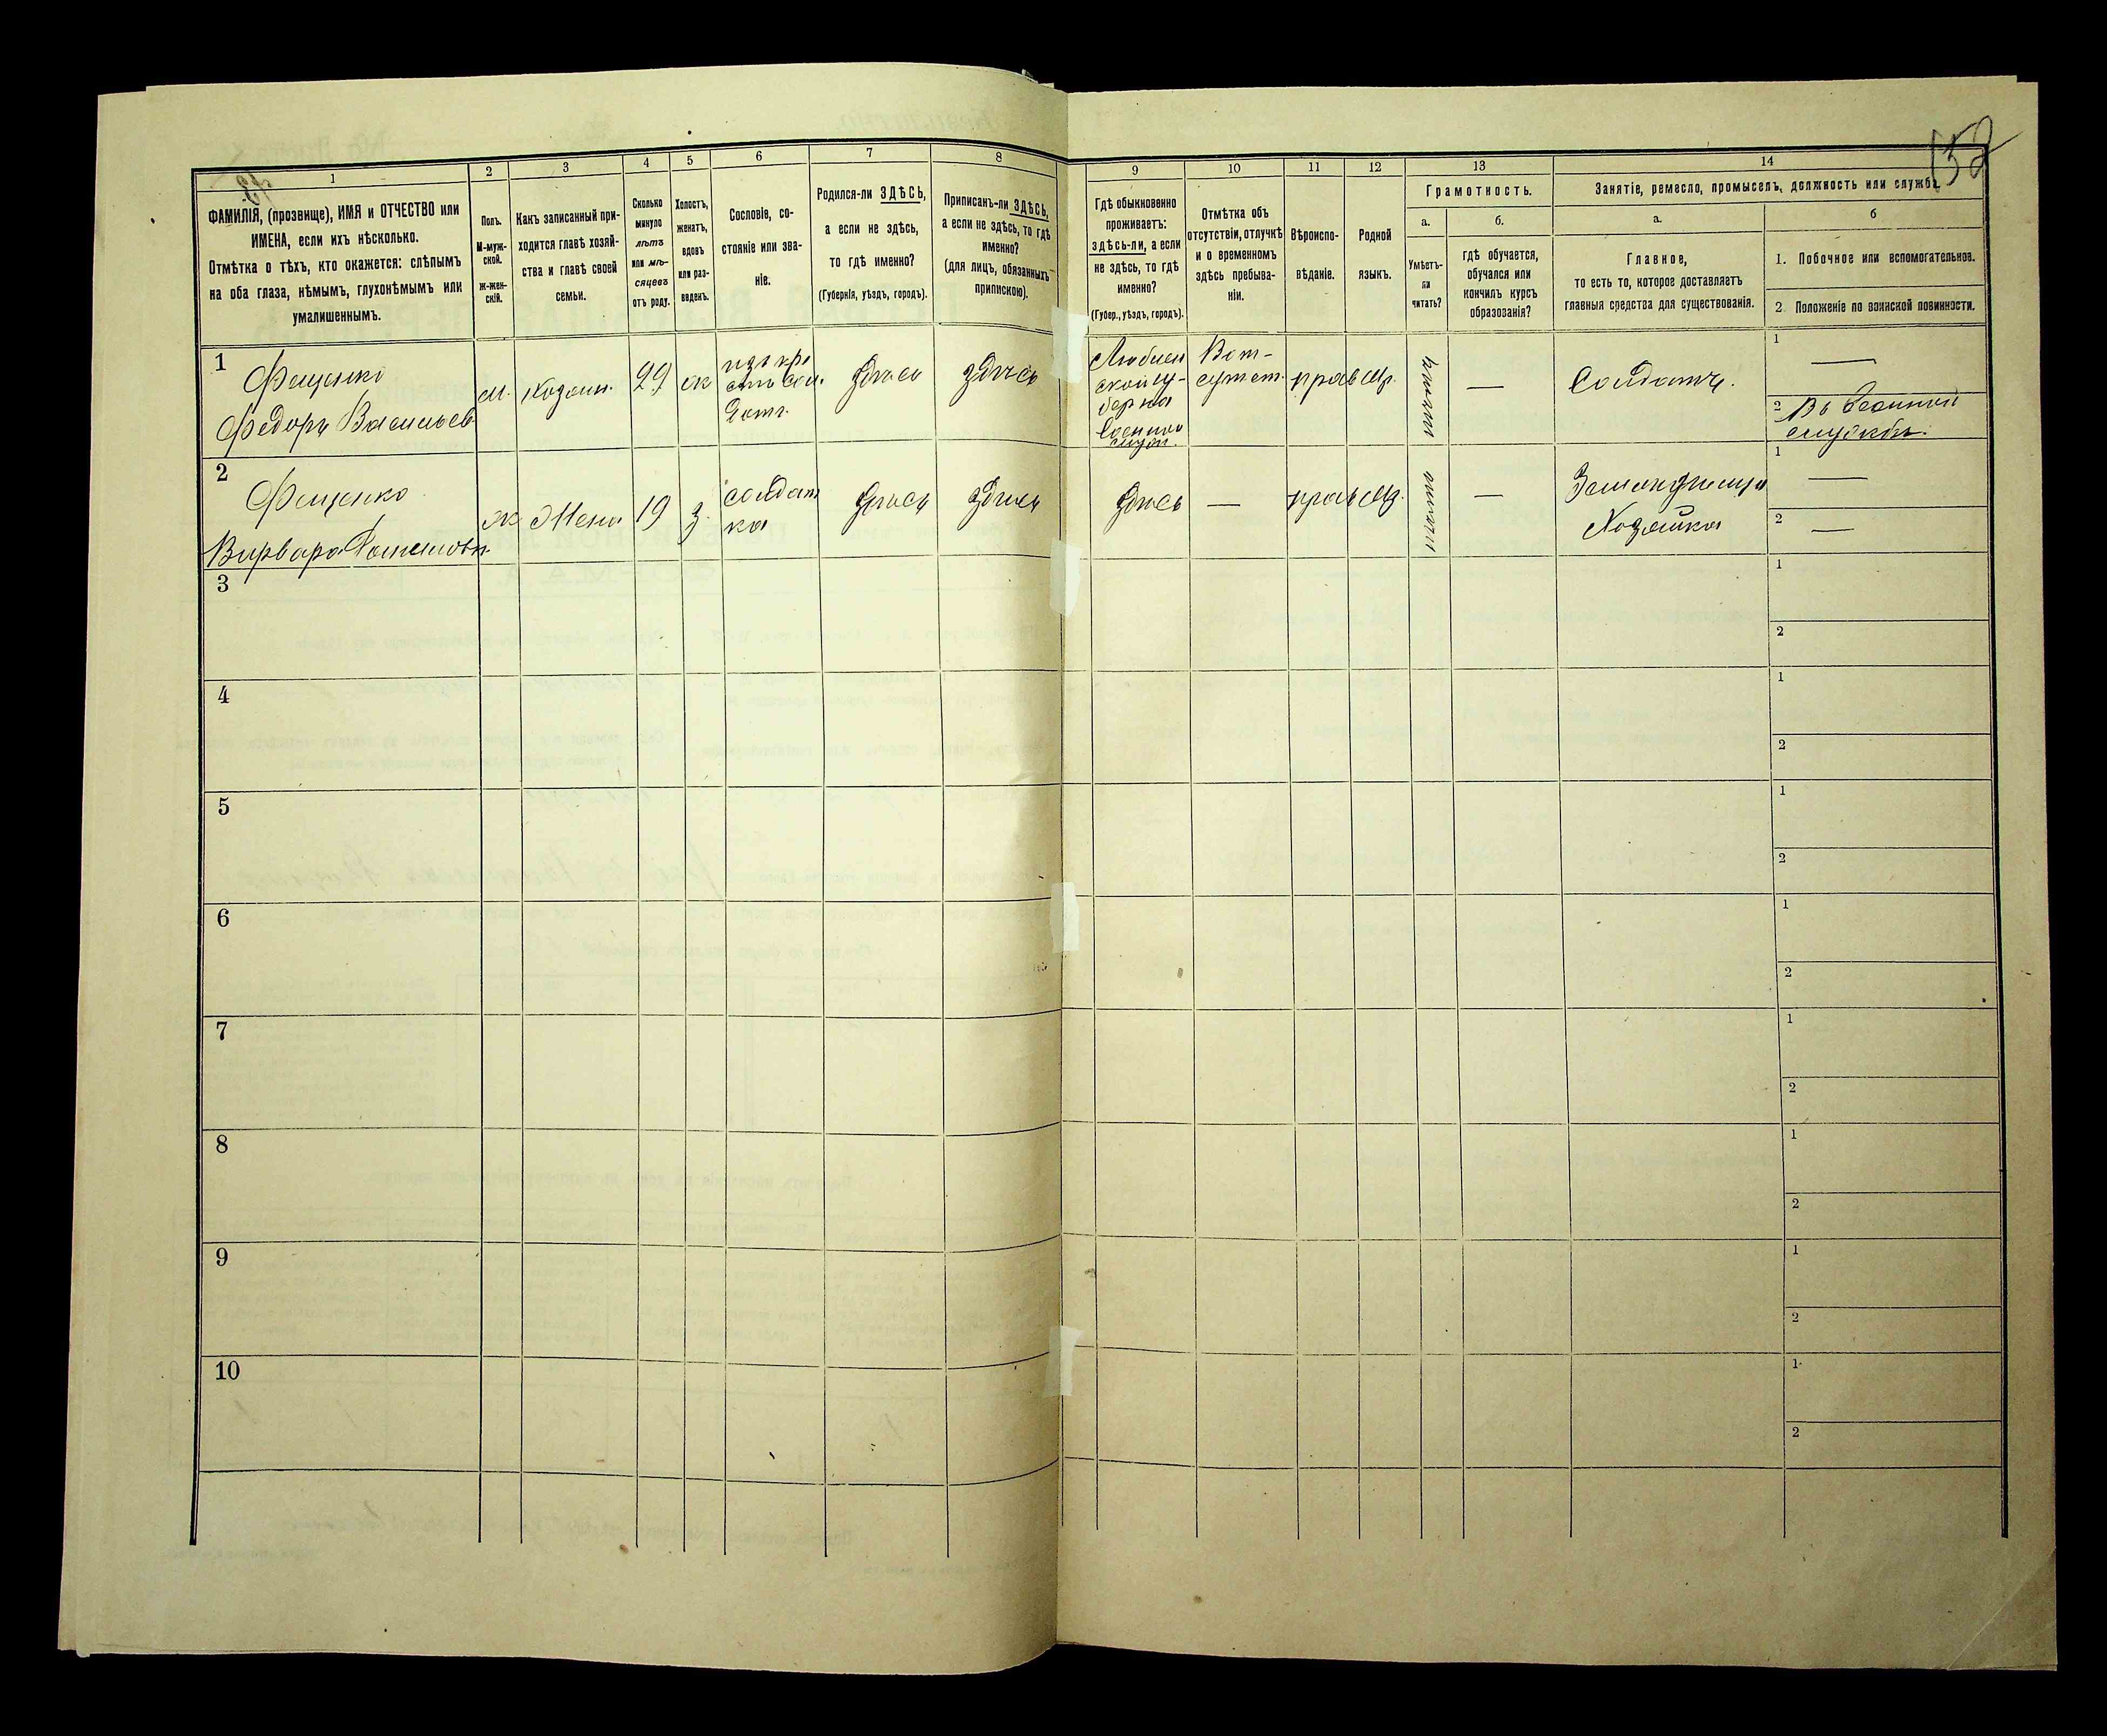 152
1
2
3
4
5
6
7
8
ФАМИЛІЯ, (прозвище), ИМЯ и ОТЧЕСТВО или
ИМЕНА, если ихъ нѣсколько.
Отмѣтка о тѣхъ, кто окажется: слѣпымъ
на оба глаза, нѣмымъ, глухонѣмымъ или
умалишеннымъ.
Полъ.
М-муж-
ской.
Ж-жен-
скій.
Какъ записанный при-
ходится главѣ хозяй-
ства и главѣ своей
семьи.
Сколько
минуло
лѣтъ
или мѣ-
сяцевъ
отъ роду.
Холостъ,
женатъ,
вдовъ
или раз-
веденъ.
Сословіе, со-
стояніе или зва-
ніе.
Родился-ли ЗДѢСЬ,
а если не здѣсь,
то гдѣ именно?
(Губернія, уѣздъ, городъ).
Приписанъ-ли ЗДѢСЬ,
а если не здѣсь, то гдѣ
именно?
(для лицъ, обязанныхъ
припискою).
9
10
11
12
13
14
Гдѣ обыкновенно
проживаетъ:
здѣсь-ли, а если
не здѣсь, то гдѣ
именно?
(Губер., уѣздъ, городъ).
Отмѣтка объ
отсутствіи, отлучкѣ
и о временномъ
здѣсь пребыва-
ніи.
Вѣроиспо-
вѣданіе.
Родной
языкъ.
Грамотность.
а.
б.
Умѣетъ-
ли
читать?
гдѣ обучается,
обучался или
кончилъ курсъ
образованія?
Занятіе, ремесло, промыселъ, должность или служба.
а.
б
Главное,
то есть то, которое доставляетъ
главныя средства для существованія.
1. Побочное или вспомогательное.
2 Положеніе по воинской повинности.
1
Фещенко
Федоръ Васильев
м.
хозяин.
29
ж
изъ кре
стъ сол.
здѣсь
здѣсь
Люблин
ской гу-
берніи
прав
мр.
—
Солдатъ.
1
—
2 Въ военной
службѣ.
2
Фещенко
Варвара
ж
Жена
19
з.
солдат
ка
здѣсь
здѣсь
здѣсь
—
прав
мр.
—
Хозяйка
1
—
2
—
3
1
2
4
1
2
5
1
2
6
1
2
7
1
2
8
1
2
9
1
2
10
1
2